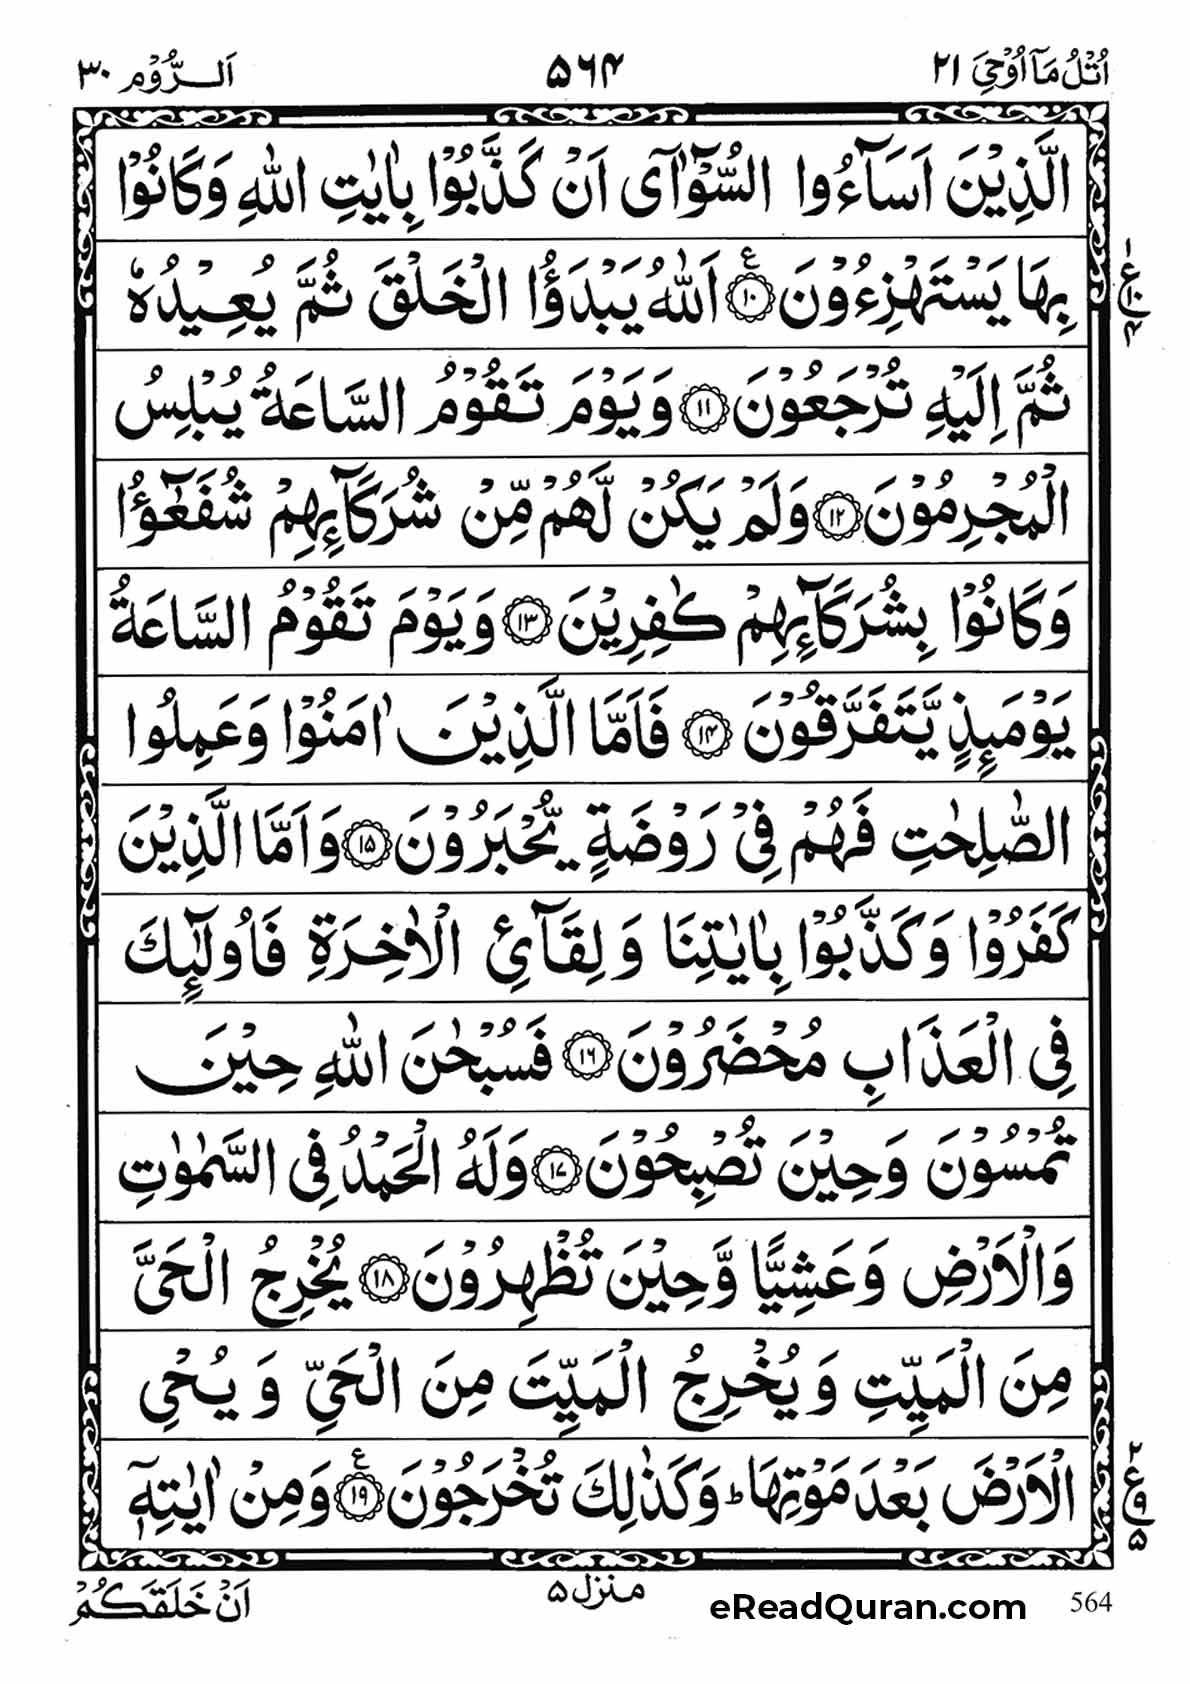 اُتْلُ مَاۤ اُوْحِیَ ۲۱
۵۶۴
اَلرُّوْم ۳۰
الَّذِیْنَ اَسَآءُوا السُّوْٓاٰۤی اَنْ كَذَّبُوْا بِاٰیٰتِ اللّٰهِ وَ كَانُوْا
بِهَا یَسْتَهْزِءُوْنَ ۱۰ اَللّٰهُ یَبْدَؤُا الْخَلْقَ ثُمَّ یُعِیْدُهٗ
ثُمَّ اِلَیْهِ تُرْجَعُوْنَ ۱۱ وَ یَوْمَ تَقُوْمُ السَّاعَةُ یُبْلِسُ
الْمُجْرِمُوْنَ ۱۲ وَ لَمْ یَكُنْ لَّهُمْ مِّنْ شُرَكَآىِٕهِمْ شُفَعٰٓؤُا
وَ كَانُوْا بِشُرَكَآىِٕهِمْ كٰفِرِیْنَ ۱۳ وَ یَوْمَ تَقُوْمُ السَّاعَةُ
یَوْمَىِٕذٍ یَّتَفَرَّقُوْنَ ۱۴ فَاَمَّا الَّذِیْنَ اٰمَنُوْا وَ عَمِلُوا
الصّٰلِحٰتِ فَهُمْ فِیْ رَوْضَةٍ یُّحْبَرُوْنَ ۱۵ وَ اَمَّا الَّذِیْنَ
كَفَرُوْا وَ كَذَّبُوْا بِاٰیٰتِنَا وَ لِقَآئِ الْاٰخِرَةِ فَاُولٰٓىِٕكَ
فِی الْعَذَابِ مُحْضَرُوْنَ ۱۶ فَسُبْحٰنَ اللّٰهِ حِیْنَ
تُمْسُوْنَ وَ حِیْنَ تُصْبِحُوْنَ ۱۷ وَ لَهُ الْحَمْدُ فِی السَّمٰوٰتِ
وَ الْاَرْضِ وَ عَشِیًّا وَّ حِیْنَ تُظْهِرُوْنَ ۱۸ یُخْرِجُ الْحَیَّ
مِنَ الْمَیِّتِ وَ یُخْرِجُ الْمَیِّتَ مِنَ الْحَیِّ وَ یُحْیِ
الْاَرْضَ بَعْدَ مَوْتِهَا ؕ وَ كَذٰلِكَ تُخْرَجُوْنَ ۱۹ وَ مِنْ اٰیٰتِهٖۤ
اَنْ خَلَقَكُمْ
منزل ۵
eReadQuran.com
564